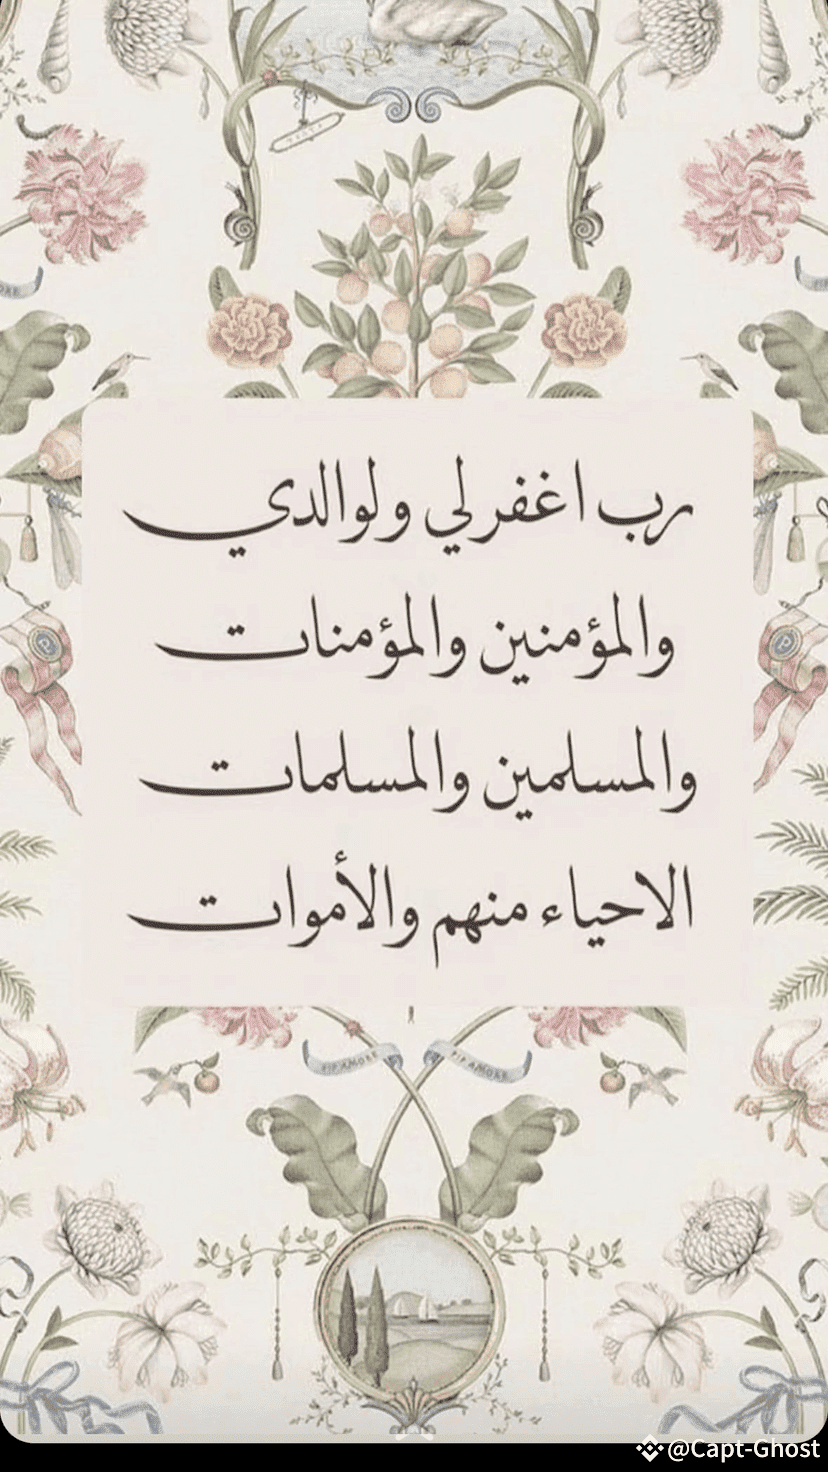 رب اغفرلي ولوالدي
والمؤمنين والمؤمنات
والمسلمين والمسلمات
الاحياء منهم والأموات
PIP AMORE PIP AMORE
@Capt-Ghost